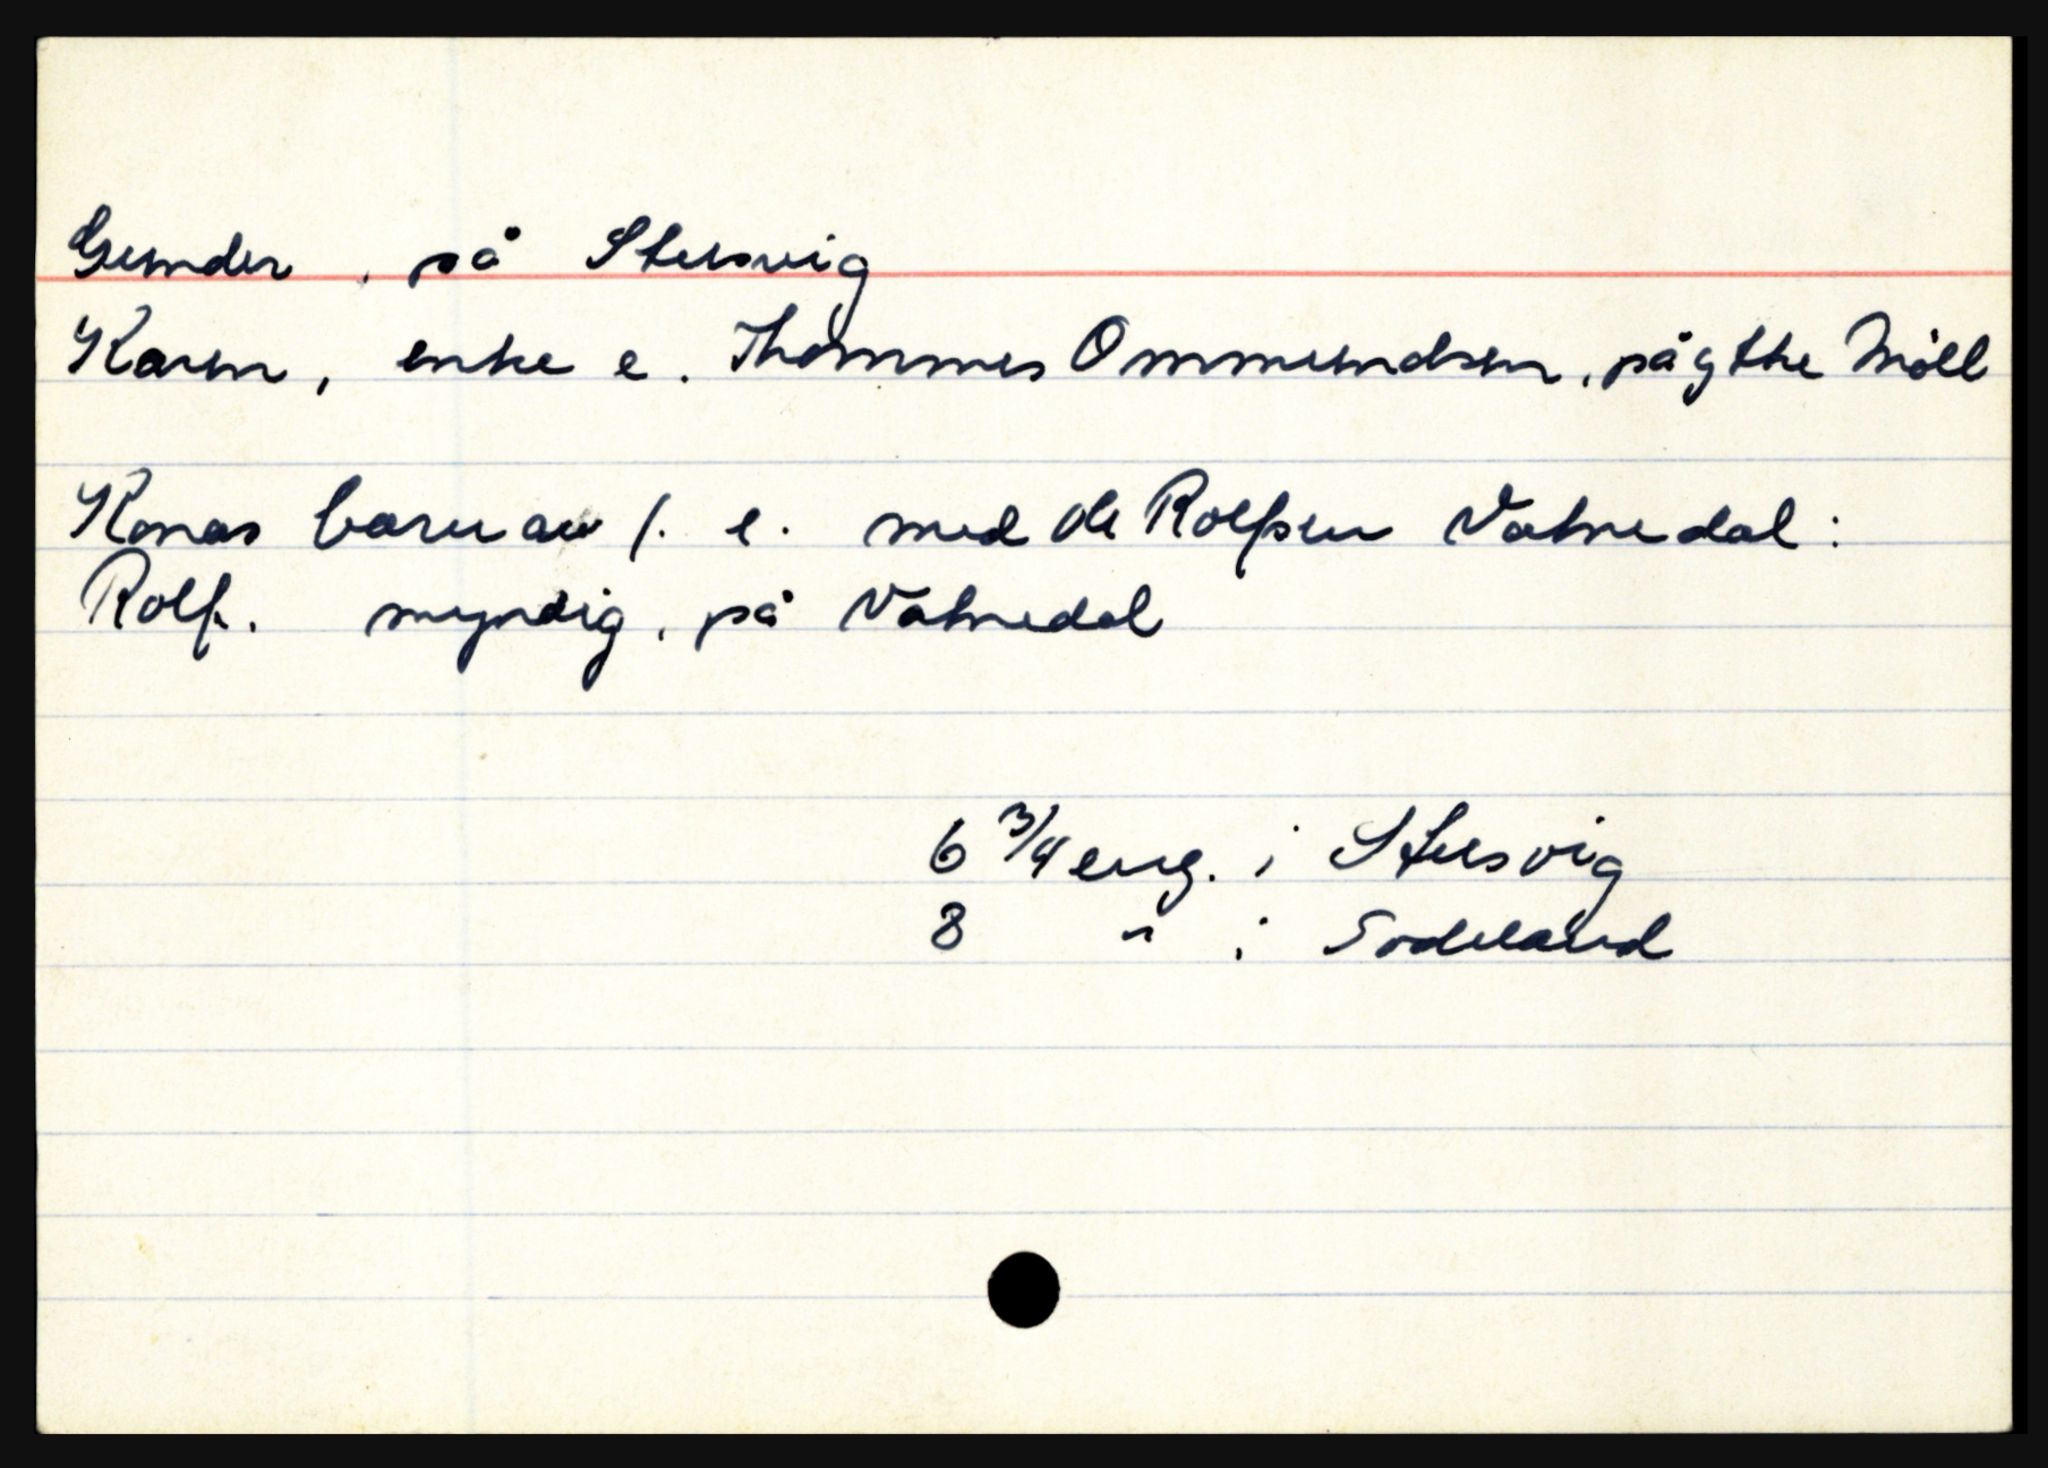 Gunder, på Stusvig
Karen, enke e. Thommes Ommundsen, på gthe Möll
Konas barn av 1. e. med Ole Rolfsen Vatnedal:
Rolf. myndig, på Vatnedal
6 3/4 eng. i Stusvig
8 " i Sodeland